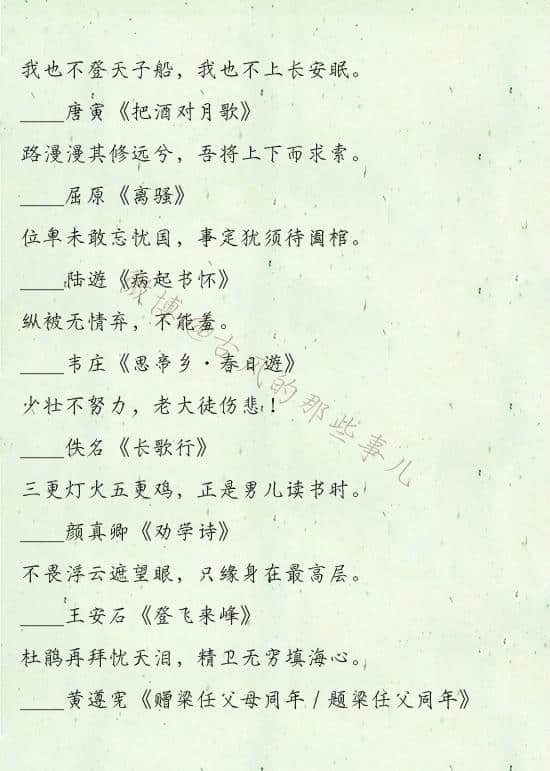 我也不登天子船，我也不上长安眠。
____唐寅《把酒对月歌》
路漫漫其修远兮，吾将上下而求索。
____屈原《离骚》
位卑未敢忘忧国，事定犹须待阖棺。
____陆遊《病起书怀》
纵被无情弃，不能羞。
____韦庄《思帝乡·春日遊》
少壮不努力，老大徒伤悲！
____佚名《长歌行》
三更灯火五更鸡，正是男儿读书时。
____颜真卿《劝学诗》
不畏浮云遮望眼，只缘身在最高层。
____王安石《登飞来峰》
杜鹃再拜忧天泪，精卫无穷填海心。
____黄遵宪《赠梁任父母同年/题梁任父同年》
微博 古风的那些事儿